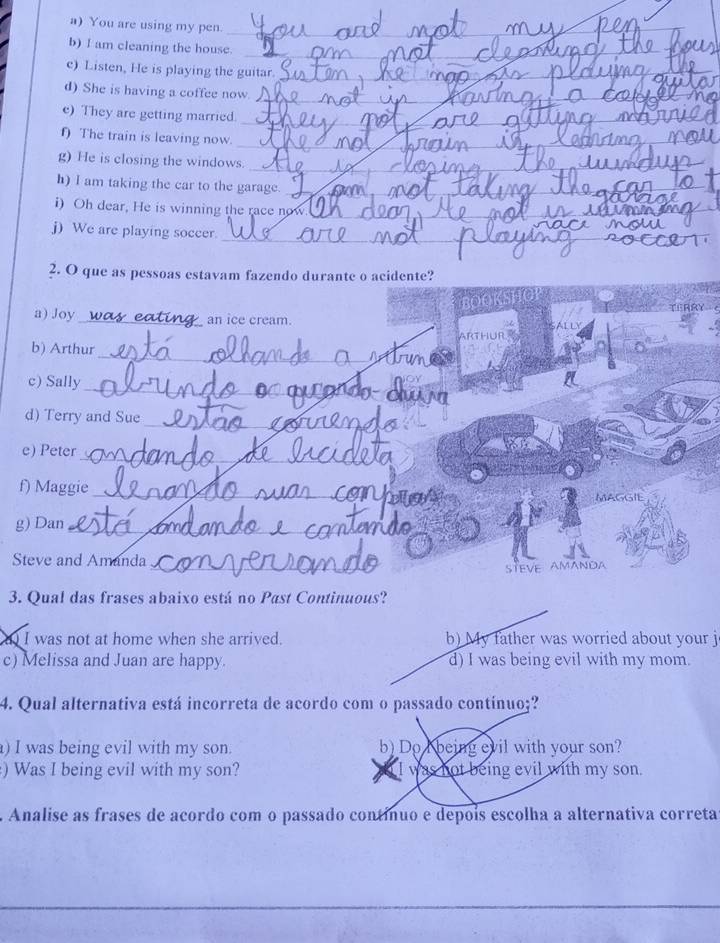 a) You are using my pen. You are not my pen
b) I am cleaning the house. I am not cleaning the hous
c) Listen, He is playing the guitar. Listen, he is playing the guitar
d) She is having a coffee now. She not is having a coffee no
e) They are getting married. they not are getting married
f) The train is leaving now. the not train is leaving now
g) He is closing the windows. He is closing the windows
h) I am taking the car to the garage. I am not taking the car to t garage
i) Oh dear, He is winning the race now. Oh dear, He not is winning race now
j) We are playing soccer. We are not playing soccer.
2. O que as pessoas estavam fazendo durante o acidente?
a) Joy was eating an ice cream.
b) Arthur está olhando a vitrine
c) Sally abrindo o guarda chuva
d) Terry and Sue estão correndo
e) Peter andando de bicideta
f) Maggie levando suas compras
g) Dan está andando e cantando
Steve and Amanda conversando
BOOKSHOP
TERRY
SALLY
ARTHUR
JOY
MAGGIE
STEVE AMANDA
3. Qual das frases abaixo está no Past Continuous?
a) I was not at home when she arrived. b) My father was worried about your j
c) Melissa and Juan are happy. d) I was being evil with my mom.
4. Qual alternativa está incorreta de acordo com o passado contínuo;?
a) I was being evil with my son. b) Do I being evil with your son?
) Was I being evil with my son? I was not being evil with my son.
. Analise as frases de acordo com o passado contínuo e depois escolha a alternativa correta